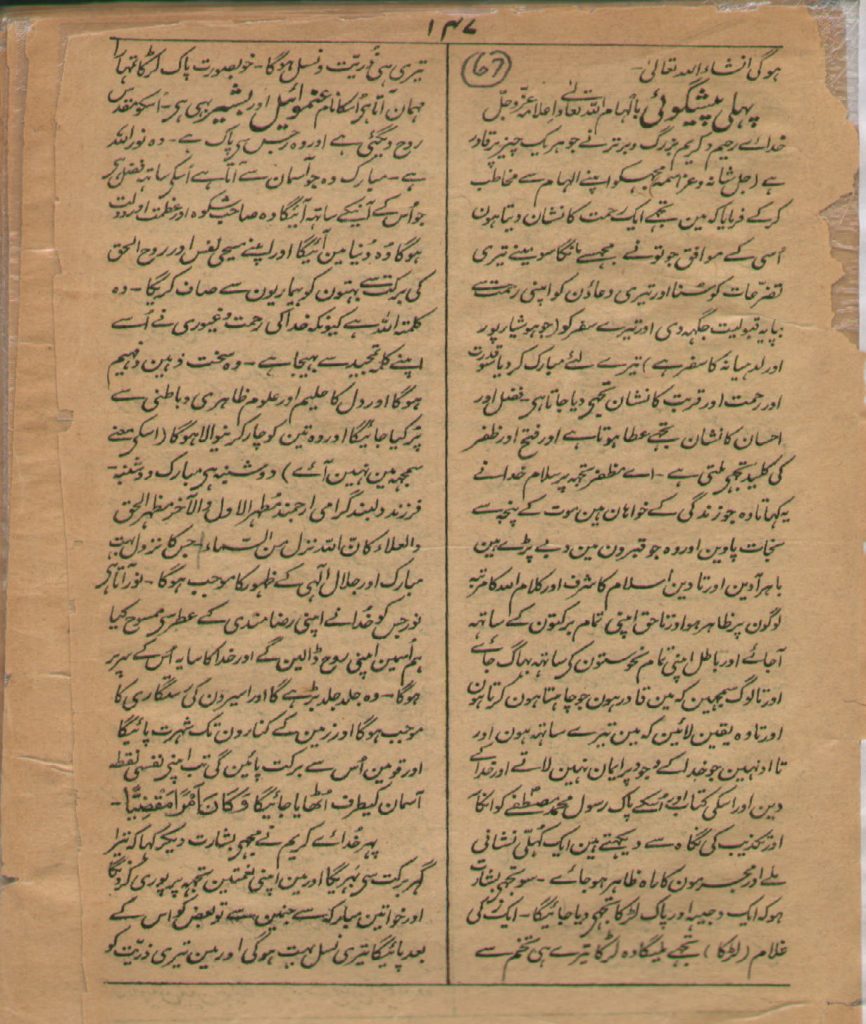 ۱۴۷
ہوگی انشاء اللہ تعالیٰ-
67
پہلی پیشگوئی بالہام اللہ تعالےٰ و اعلامہ عزوجل
خدائے رحیم و کریم بزرگ و برتر نے جو ہریک چیز پر قادر
ہے (جل شانہ و عز اسمہ) مجہکو اپنے الہام سے مخاطب
کرکے فرمایا کہ مین تجہے ایک رحمت کا نشان دیتا ہون
اُسی کے موافق جو تو نے مجہسے مانگا سو مینے تیری
تضرعات کو سُنا اور تیری دعاؤن کو اپنی رحمت سے
بپایہ قبولیت جگہہ دی اور تیرے سفر کو (جو ہوشیارپور
اور لدہیانہ کا سفر ہے) تیرے لئے مبارک کردیا سو قدرت
اور رحمت اور قربت کا نشان تجہی دیا جاتا ہی۔ فضل اور
احسان کا نشان تجہے عطا ہوتا ہے اور فتح اور ظفر
کی کلید تجہی ملتی ہے۔ اے مظفر تجہہ پر سلام خدا نے
یہ کہا تا وہ جو زندگی کے خواہان ہین موت کے پنجہ سے
نجات پاوین اور وہ جو قبرون مین دبے پڑے ہین
باہر آوین اور تا دین اسلام کا شرف اور کلام اللہ کا مرتبہ
لوگون پر ظاہر ہو اور تا حق اپنی تمام برکتون کے ساتہہ
آجائے اور باطل اپنی تمام نحوستون کے ساتہہ بہاگ جائے
اور تا لوگ سمجہین کہ مین قادر ہون جو چاہتا ہون کرتا ہون
اور تا وہ یقین لائین کہ مین تیرے ساتہہ ہون اور
تا اونہین جو خدا کے وجود پر ایمان نہین لاتے اور خدا کے
دین اور اسکی کتاب اور اسکے پاک رسول محمد مصطفےٰ کو انکار
اور تکذیب کی نگاہ سے دیکہتے ہین ایک کُہلی نشانی
ملے اور مجرمون کا راہ ظاہر ہو جائے۔ سو تجہی بشارت
ہو کہ ایک وجیہہ اور پاک لڑکا تجہی دیا جائیگا۔ ایک زکی
غلام (لڑکا) تجہے ملیگا وہ لڑکا تیرے ہی تخم سے
تیری ہی ذُریّت و نسل ہوگا۔ خوبصورت پاک لڑکا تمہارا
مہمان آتا ہی اُسکا نام عنموائیل اور بشیر بہی ہی۔ اُسکو مقدس
روح دیگئی ہے اور وہ رجس سے پاک ہے۔ وہ نور اللہ
ہے۔ مبارک وہ جو آسمان سے آتا ہے اُسکی ساتہہ فضل ہی
جو اُس کے آنیکے ساتہہ آئیگا وہ صاحب شکوہ اور عظمت اور دولت
ہوگا وُہ دُنیا مین آئیگا اور اپنے مسیحی نفس اور روح الحق
کی برکت سے بہتون کو بیماریون سے صاف کریگا۔ وہ
کلمۃ اللہ ہے کیونکہ خدا کی رحمت و غیوری نے اُسے
اپنے کلمہ تمجید سے بہیجا ہے۔ وہ سخت ذہین و فہیم
ہوگا اور دل کا حلیم اور علوم ظاہری و باطنی سے
پُر کیا جائیگا اور وہ تین کو چار کرنیوالا ہوگا (اسکی معنے
سمجہہ مین نہین آئے) دوشنبہ ہی مبارک دوشنبہ۔
فرزند دلبند گرامی ارجمند مُظہر الاول والآخر مظہر الحق
والعلاء کان اللہ نزل من السماء جس کا نزول بہت
مبارک اور جلال الٰہی کے ظہور کا موجب ہوگا۔ نور آتا ہی
نور جس کو خدا نے اپنی رضامندی کے عطر سے ممسوح کیا
ہم اُسمین اپنی روح ڈالین گے اور خدا کا سایہ اُس کے سر پر
ہوگا۔ وہ جلد جلد بڑہے گا اور اسیرون کی رستگاری کا
موجب ہوگا اور زمین کے کنارون تک شہرت پائیگا
اور قومین اُس سے برکت پائین گی تب اپنی نفسی نقطہ
آسمان کیطرف اٹھایا جائیگا وَکَانَ اَمْرًا مَّقْضِیًّا۔
پہر خدائے کریم نے مجہی بشارت دیکر کہا کہ تیرا
گہر برکت سی بہریگا اور مین اپنی نعمتین تجہہ پر پوری کرونگا
اور خواتین مبارکہ سے جنمین سے تو بعض کو اس کے
بعد پائیگا تیری نسل بہت ہوگی اور مین تیری ذریّت کو